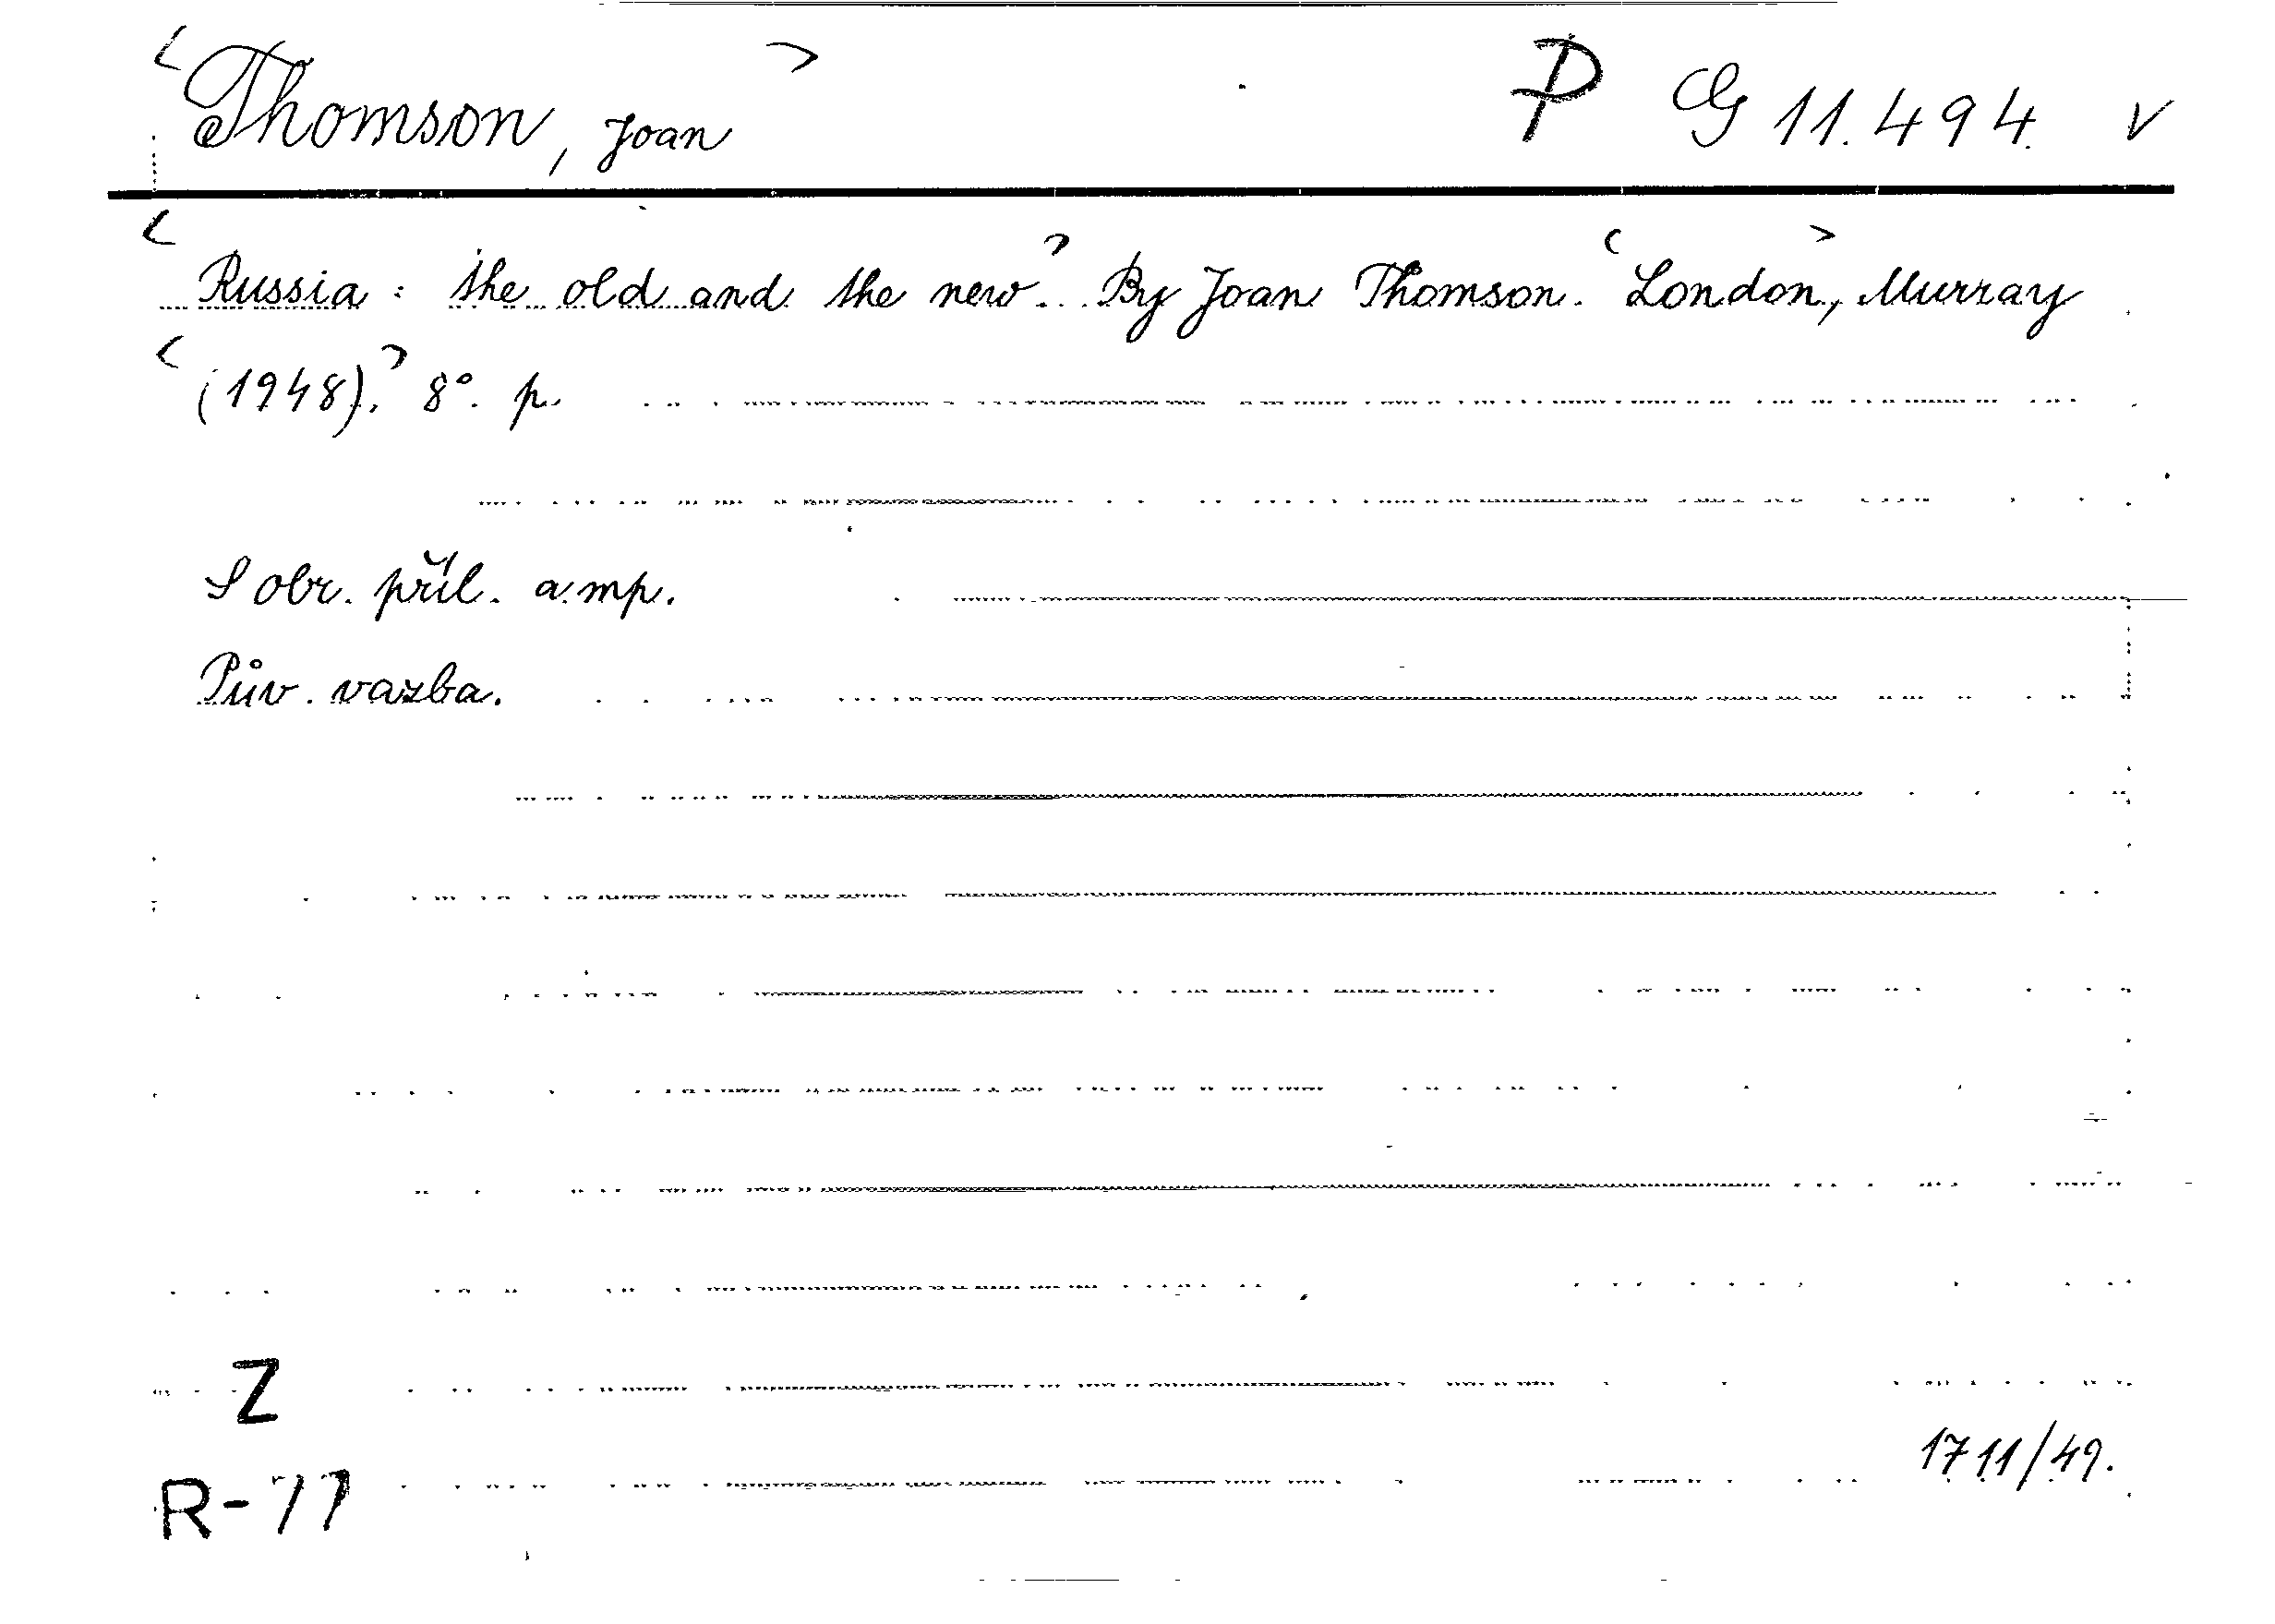 <Thomson, Joan> P G 11.494. v
<Russia: the old and the new>. By Joan Thomson. <London>, Murray
<(1948).> 8°. p.
S obr. příl. a mp.
Pův. vazba.
Z
1711/49.
R-77